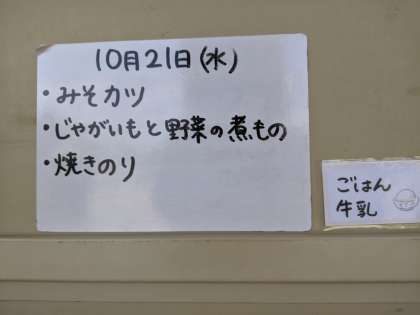 10月21日(水)
・みそカツ
・じゃがいもと野菜の煮もの
・焼きのり
ごはん
牛乳